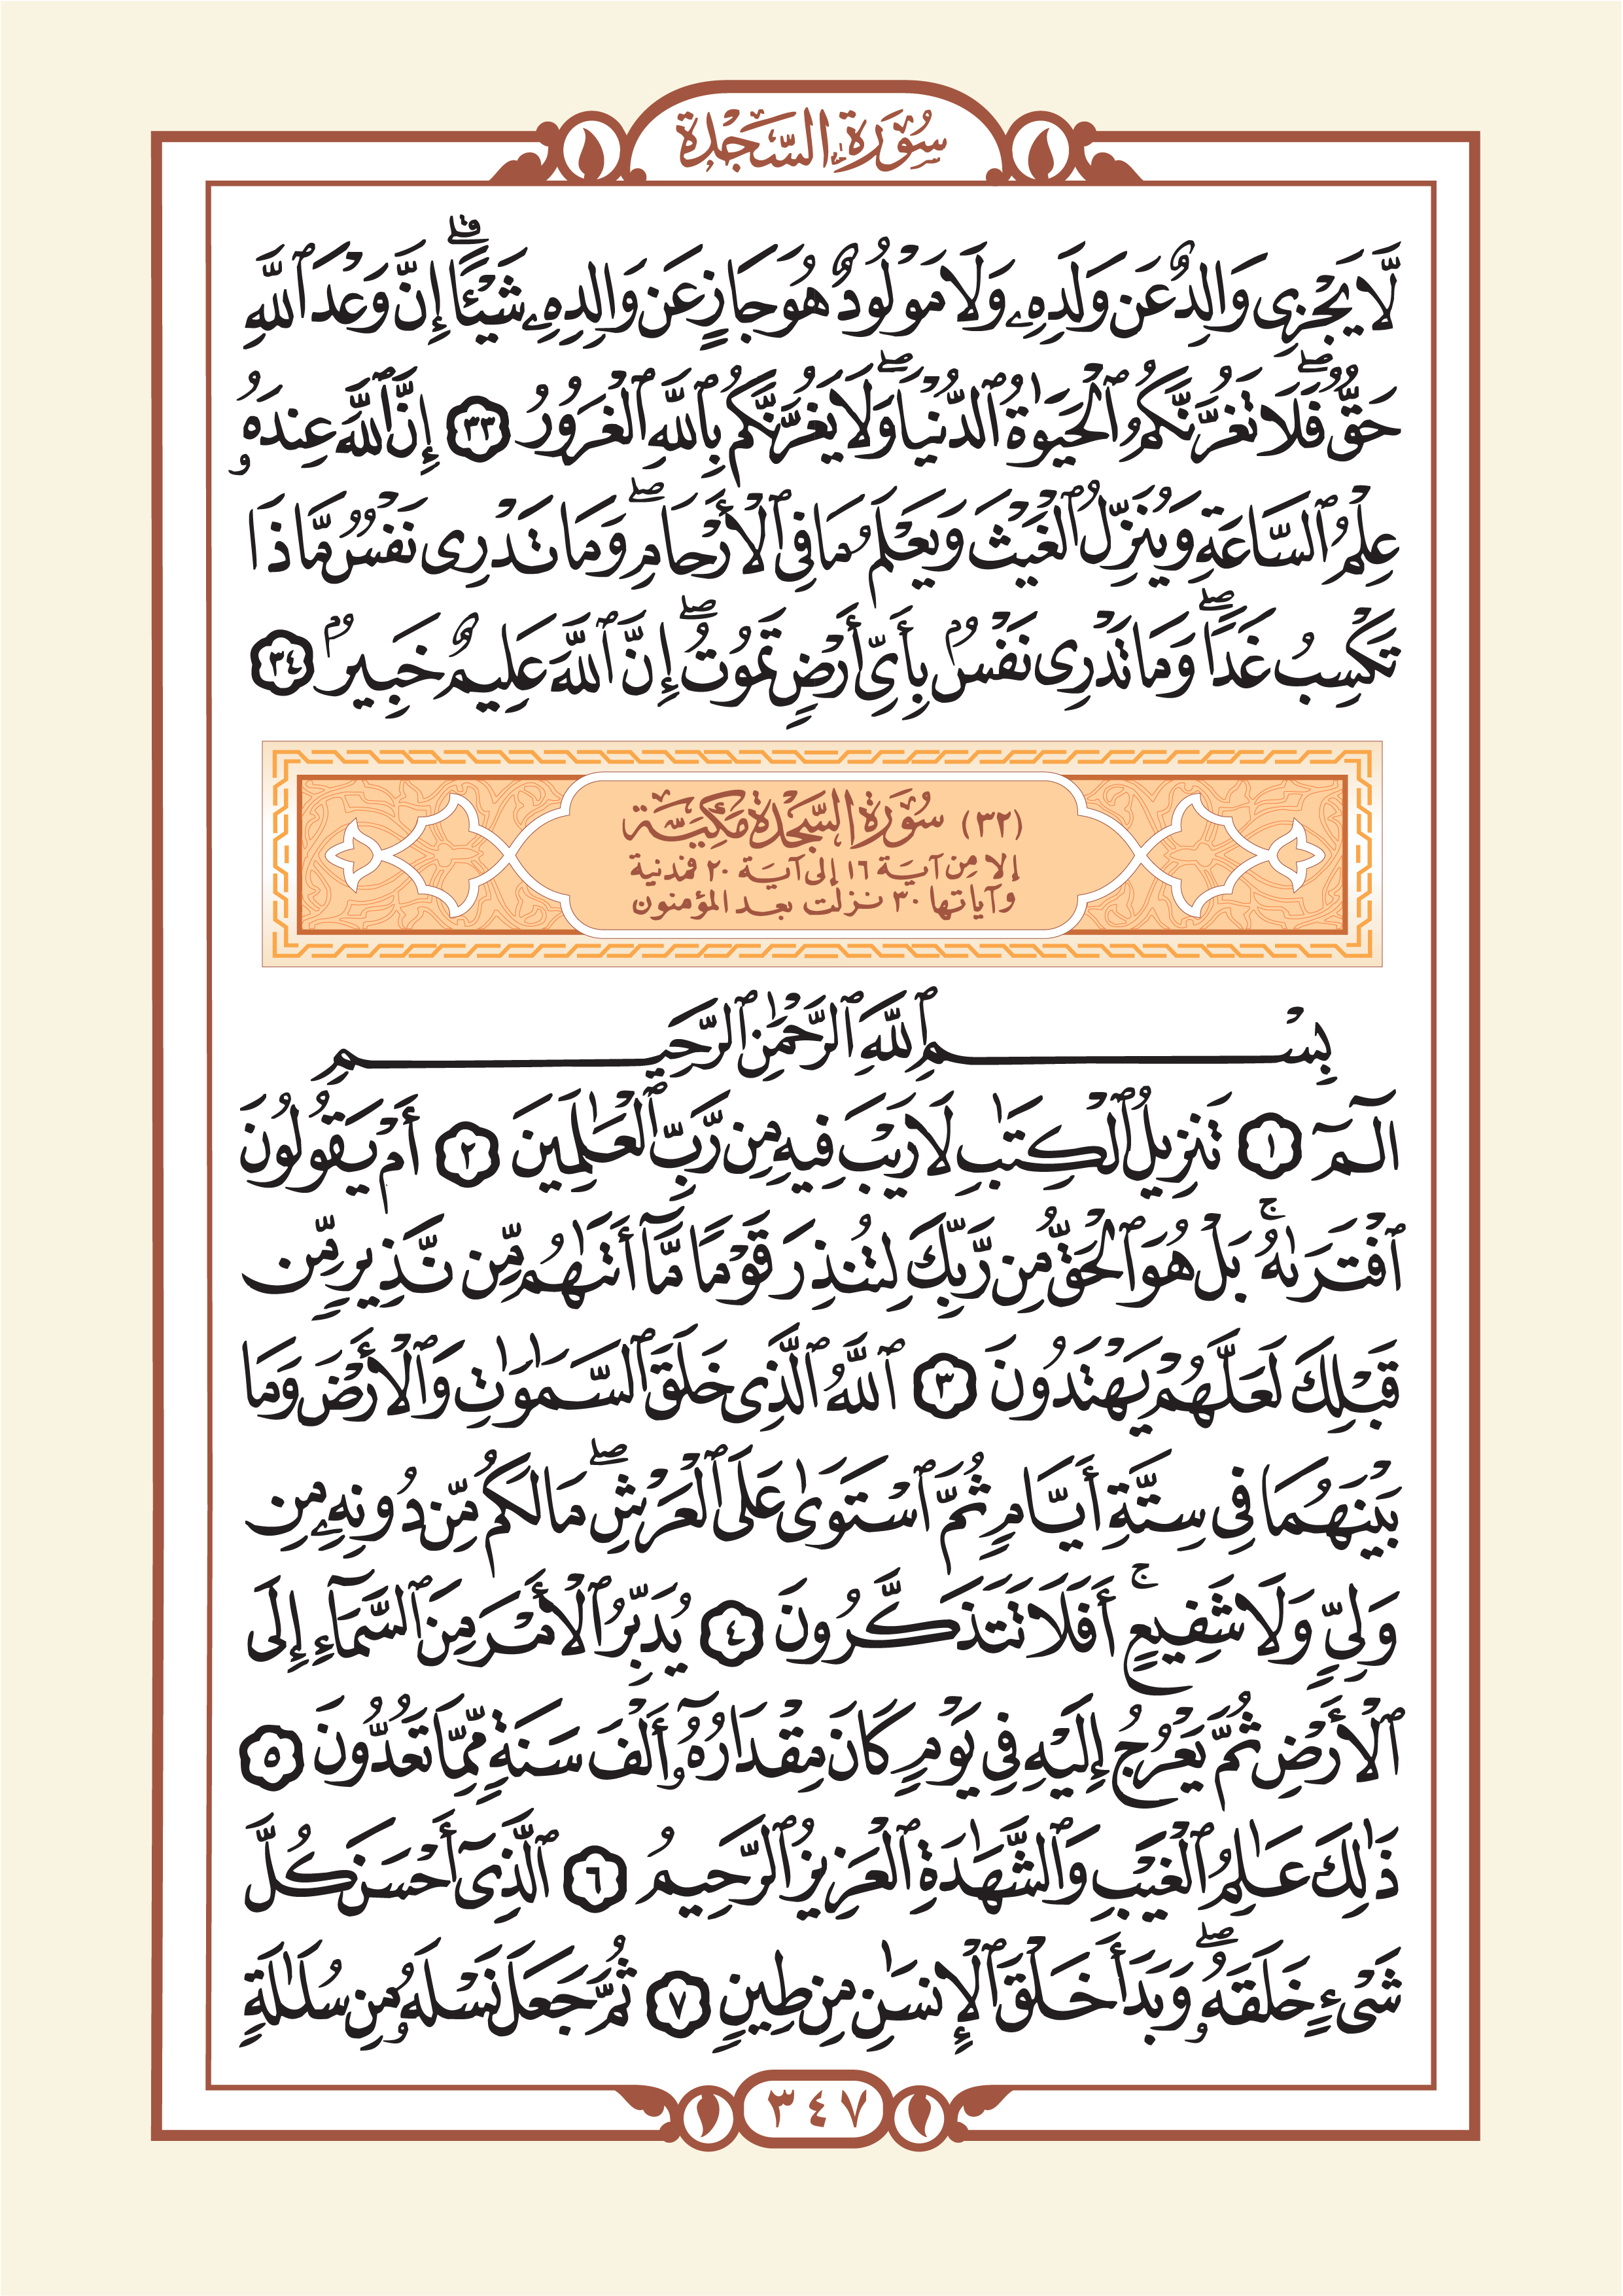 سُورَةُ السَّجْدَةِ
لَّا يَجْزِى وَالِدٌ عَن وَلَدِهِۦ وَلَا مَوْلُودٌ هُوَ جَازٍ عَن وَالِدِهِۦ شَيْـًٔا ۗ إِنَّ وَعْدَ ٱللَّهِ
حَقٌّ ۖ فَلَا تَغُرَّنَّكُمُ ٱلْحَيَوٰةُ ٱلدُّنْيَا ۖ وَلَا يَغُرَّنَّكُم بِٱللَّهِ ٱلْغَرُورُ ٣٣ إِنَّ ٱللَّهَ عِندَهُۥ
عِلْمُ ٱلسَّاعَةِ وَيُنَزِّلُ ٱلْغَيْثَ وَيَعْلَمُ مَا فِى ٱلْأَرْحَامِ ۖ وَمَا تَدْرِى نَفْسٌ مَّاذَا
تَكْسِبُ غَدًا ۖ وَمَا تَدْرِى نَفْسٌۢ بِأَىِّ أَرْضٍ تَمُوتُ ۚ إِنَّ ٱللَّهَ عَلِيمٌ خَبِيرٌۢ ٣٤
(٣٢) سُورَةُ السَّجْدَةِ مَكِّيَّة
إلا من آية ١٦ إلى آية ٢٠ فمدنية
وآياتها ٣٠ نزلت بعد المؤمنون
بِسْمِ ٱللَّهِ ٱلرَّحْمَٰنِ ٱلرَّحِيمِ
الٓمٓ ١ تَنزِيلُ ٱلْكِتَٰبِ لَا رَيْبَ فِيهِ مِن رَّبِّ ٱلْعَٰلَمِينَ ٢ أَمْ يَقُولُونَ
ٱفْتَرَىٰهُ ۚ بَلْ هُوَ ٱلْحَقُّ مِن رَّبِّكَ لِتُنذِرَ قَوْمًا مَّآ أَتَىٰهُم مِّن نَّذِيرٍ مِّن
قَبْلِكَ لَعَلَّهُمْ يَهْتَدُونَ ٣ ٱللَّهُ ٱلَّذِى خَلَقَ ٱلسَّمَٰوَٰتِ وَٱلْأَرْضَ وَمَا
بَيْنَهُمَا فِى سِتَّةِ أَيَّامٍ ثُمَّ ٱسْتَوَىٰ عَلَى ٱلْعَرْشِ ۖ مَا لَكُم مِّن دُونِهِۦ مِن
وَلِىٍّ وَلَا شَفِيعٍ ۚ أَفَلَا تَتَذَكَّرُونَ ٤ يُدَبِّرُ ٱلْأَمْرَ مِنَ ٱلسَّمَآءِ إِلَى
ٱلْأَرْضِ ثُمَّ يَعْرُجُ إِلَيْهِ فِى يَوْمٍ كَانَ مِقْدَارُهُۥٓ أَلْفَ سَنَةٍ مِّمَّا تَعُدُّونَ ٥
ذَٰلِكَ عَٰلِمُ ٱلْغَيْبِ وَٱلشَّهَٰدَةِ ٱلْعَزِيزُ ٱلرَّحِيمُ ٦ ٱلَّذِىٓ أَحْسَنَ كُلَّ
شَىْءٍ خَلَقَهُۥ ۖ وَبَدَأَ خَلْقَ ٱلْإِنسَٰنِ مِن طِينٍ ٧ ثُمَّ جَعَلَ نَسْلَهُۥ مِن سُلَٰلَةٍ
٣٤٧